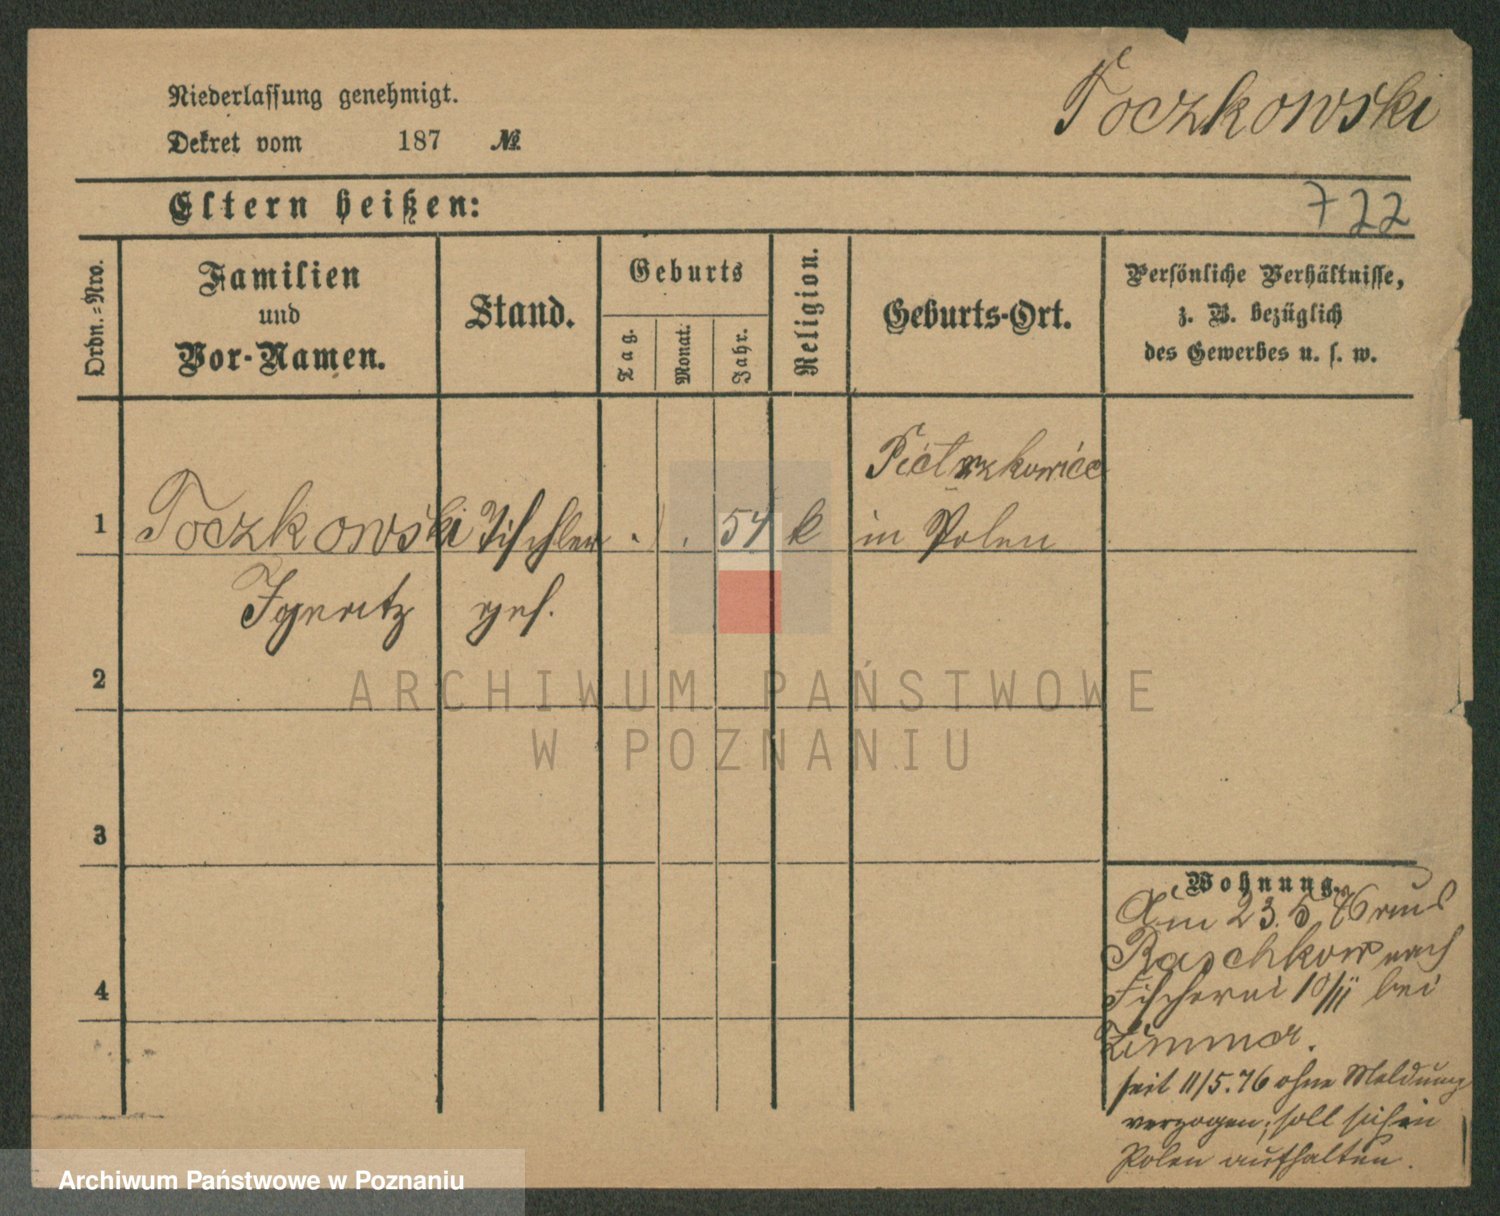 Toczkowski
Niederlassung genehmigt.
Dekret vom 187 №
Eltern heißen:
722
Ordn.-Nro.
Familien
und
Vor-Namen.
Stand.
Geburts
Tag.
Monat.
Jahr.
Religion.
Geburts-Ort.
Persönliche Verhältnisse,
z. B. bezüglich
des Gewerbes u. s. w.
Pietrzkowice
1 Toczkowski Tischler . . 54 k in Polen
Ignatz ges.
2
ARCHIWUM PAŃSTWOWE
W POZNANIU
3
Wohnung.
Am 23.5.76 aus
Raschkow nach
Fischerei 10/II bei
Zimmer.
seit 11/5.76 ohne Meldung
verzogen; soll sich in
Polen aufhalten.
4
Archiwum Państwowe w Poznaniu